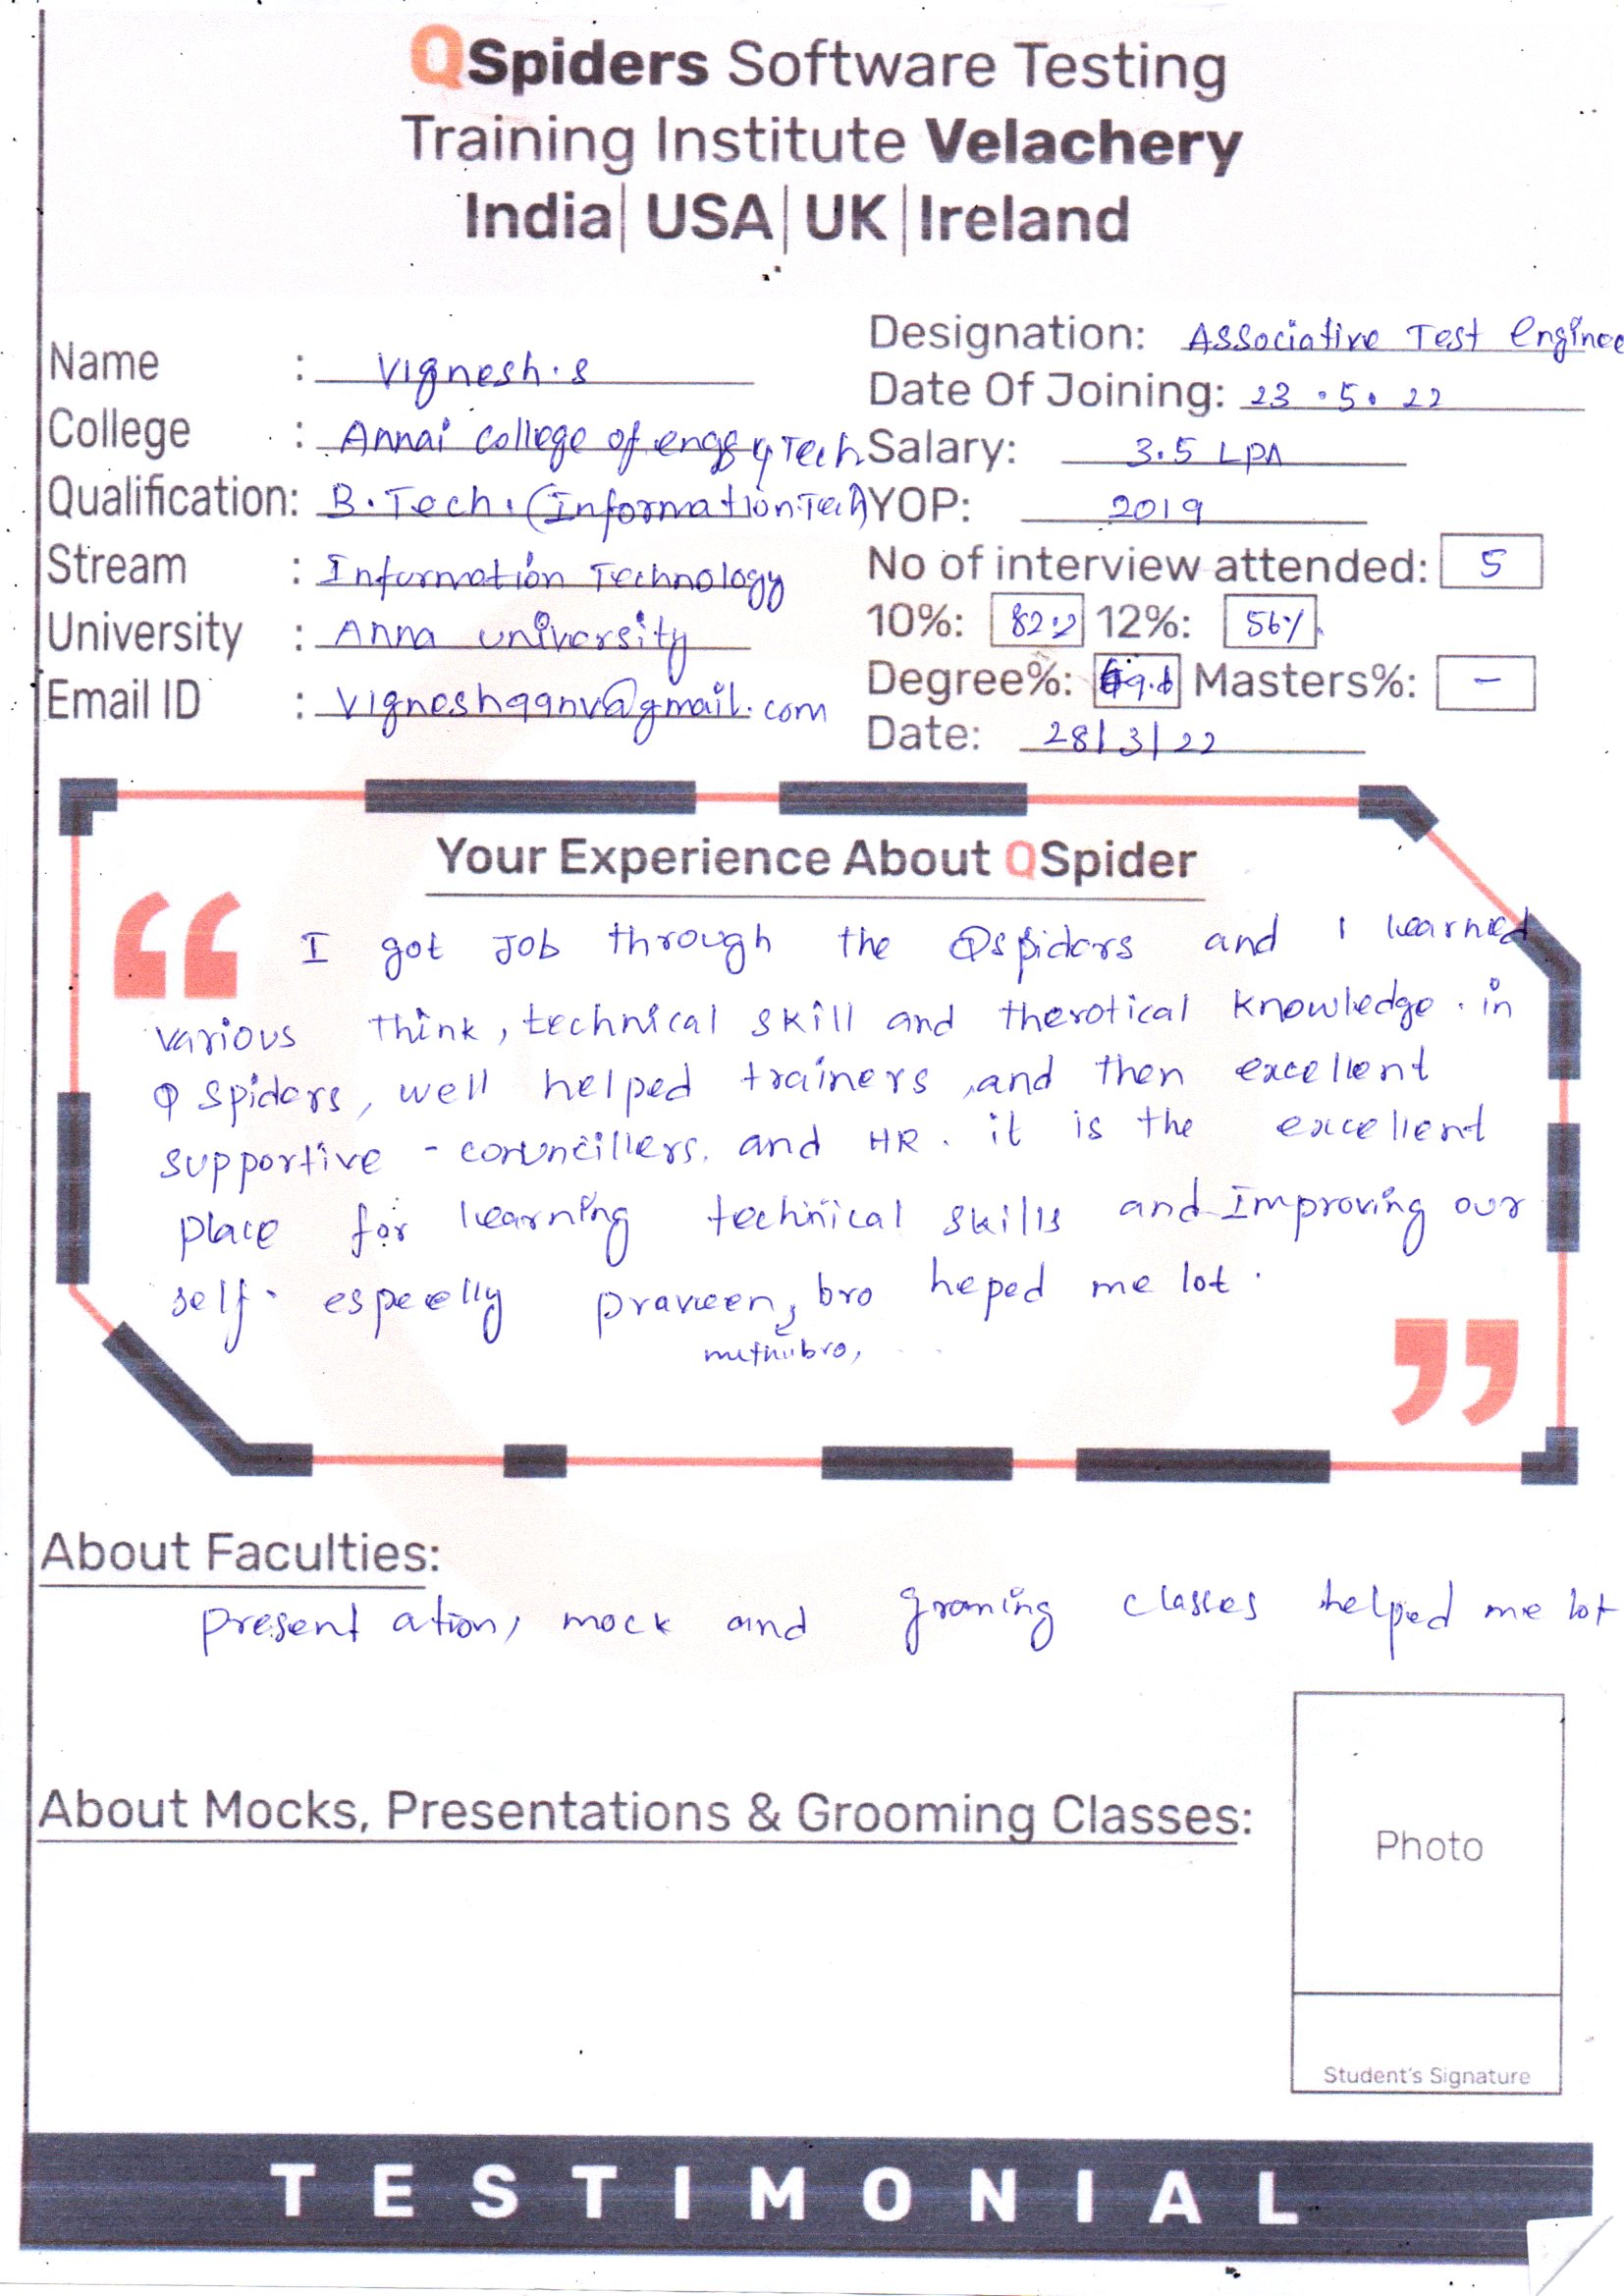 QSpiders Software Testing
Training Institute Velachery
India| USA| UK |Ireland
Name : Vignesh.S
College : Annai College of engg & Tech
Qualification: B.Tech. (Information Tech)
Stream : Information Technology
University : Anna university
Email ID : vignesh99nv@gmail.com
Designation: Associative Test Enginee
Date Of Joining: 23.5.22
Salary: 3.5 LPA
YOP: 2019
No of interview attended: 5
10%: 82.2 12%: 56%
Degree%: Masters%: -
Date: 28/3/22
Your Experience About QSpider
“
I got Job through the Qspiders and I learned
various think, technical skill and therotical knowledge. in
Q spiders, well helped trainers, and then excellent
supportive - councillers. and HR. it is the excellent
place for learning technical skills and Improving our
self. especelly praveen, bro heped me lot.
bro,
”
About Faculties:
present ation, mock and groming classes helped me lot
About Mocks, Presentations & Grooming Classes:
Photo
Student's Signature
TESTIMONIAL